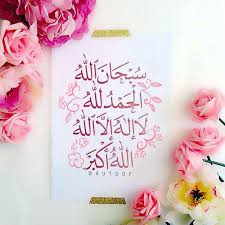 سُبْحَانَ اللّٰه
الْحَمْدُ لِلّٰه
لَا إِلٰهَ إِلَّا اللّٰه
اللّٰهُ أَكْبَر